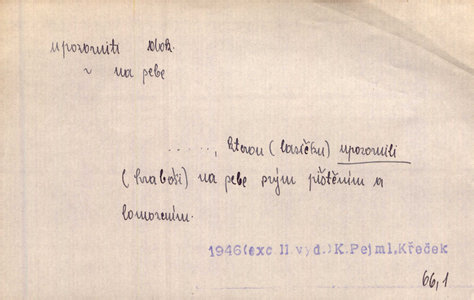 upozorniti dok.
~ na sebe
......, kterou (lasičku) upozornili
(hraboši) na sebe svým pištěním a
lomozením.
1946(exc.II.vyd.)K.Pejml,Křeček
66,1